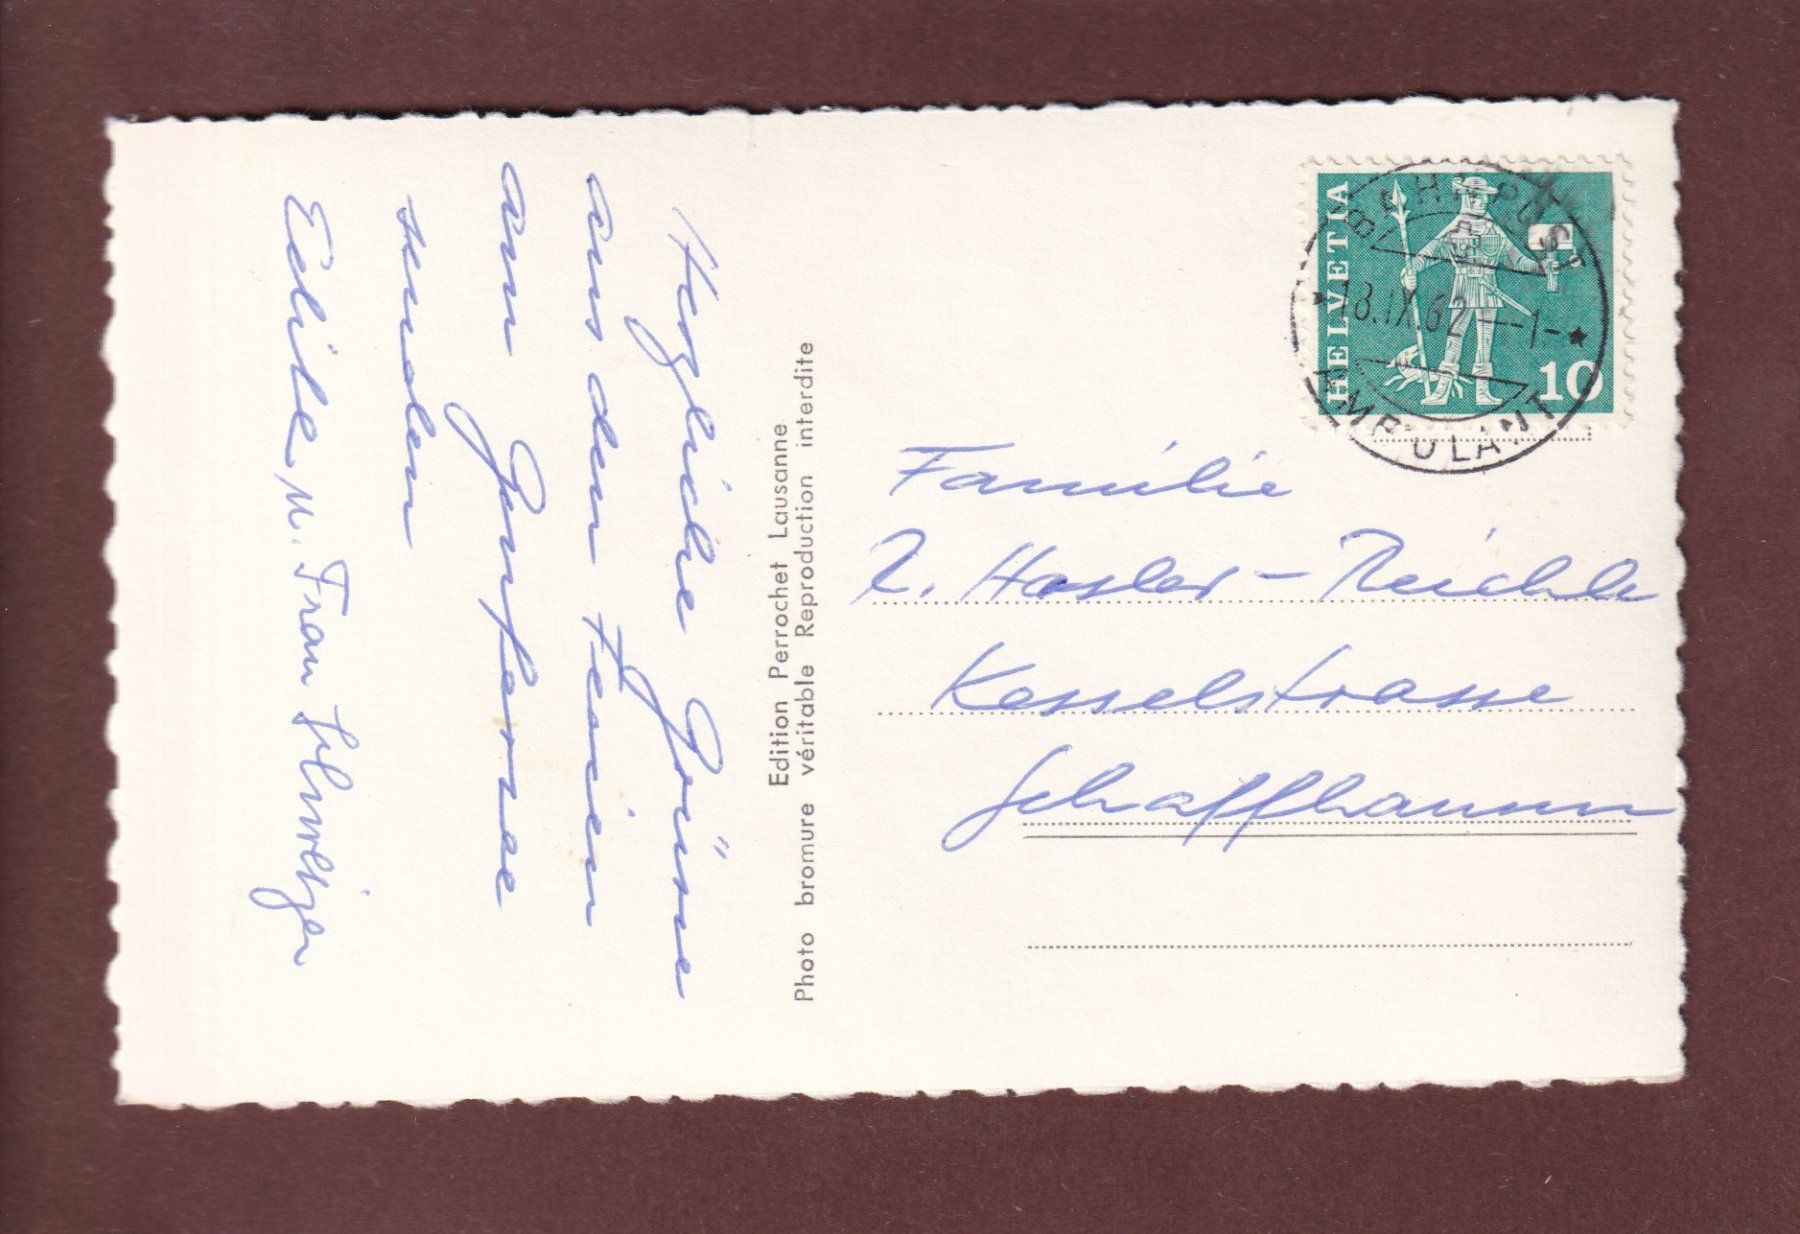 Herzliche Grüsse
aus den Ferien
am Genfersee
senden
u. Frau
Edition Perrochet Lausanne
Photo bromure véritable Reproduction interdite
HELVETIA
10
BAHNPOST
18.IX.62—1-
AMBULANT
Familie
Hasler-Reichle
Kesselstrasse
Schaffhausen